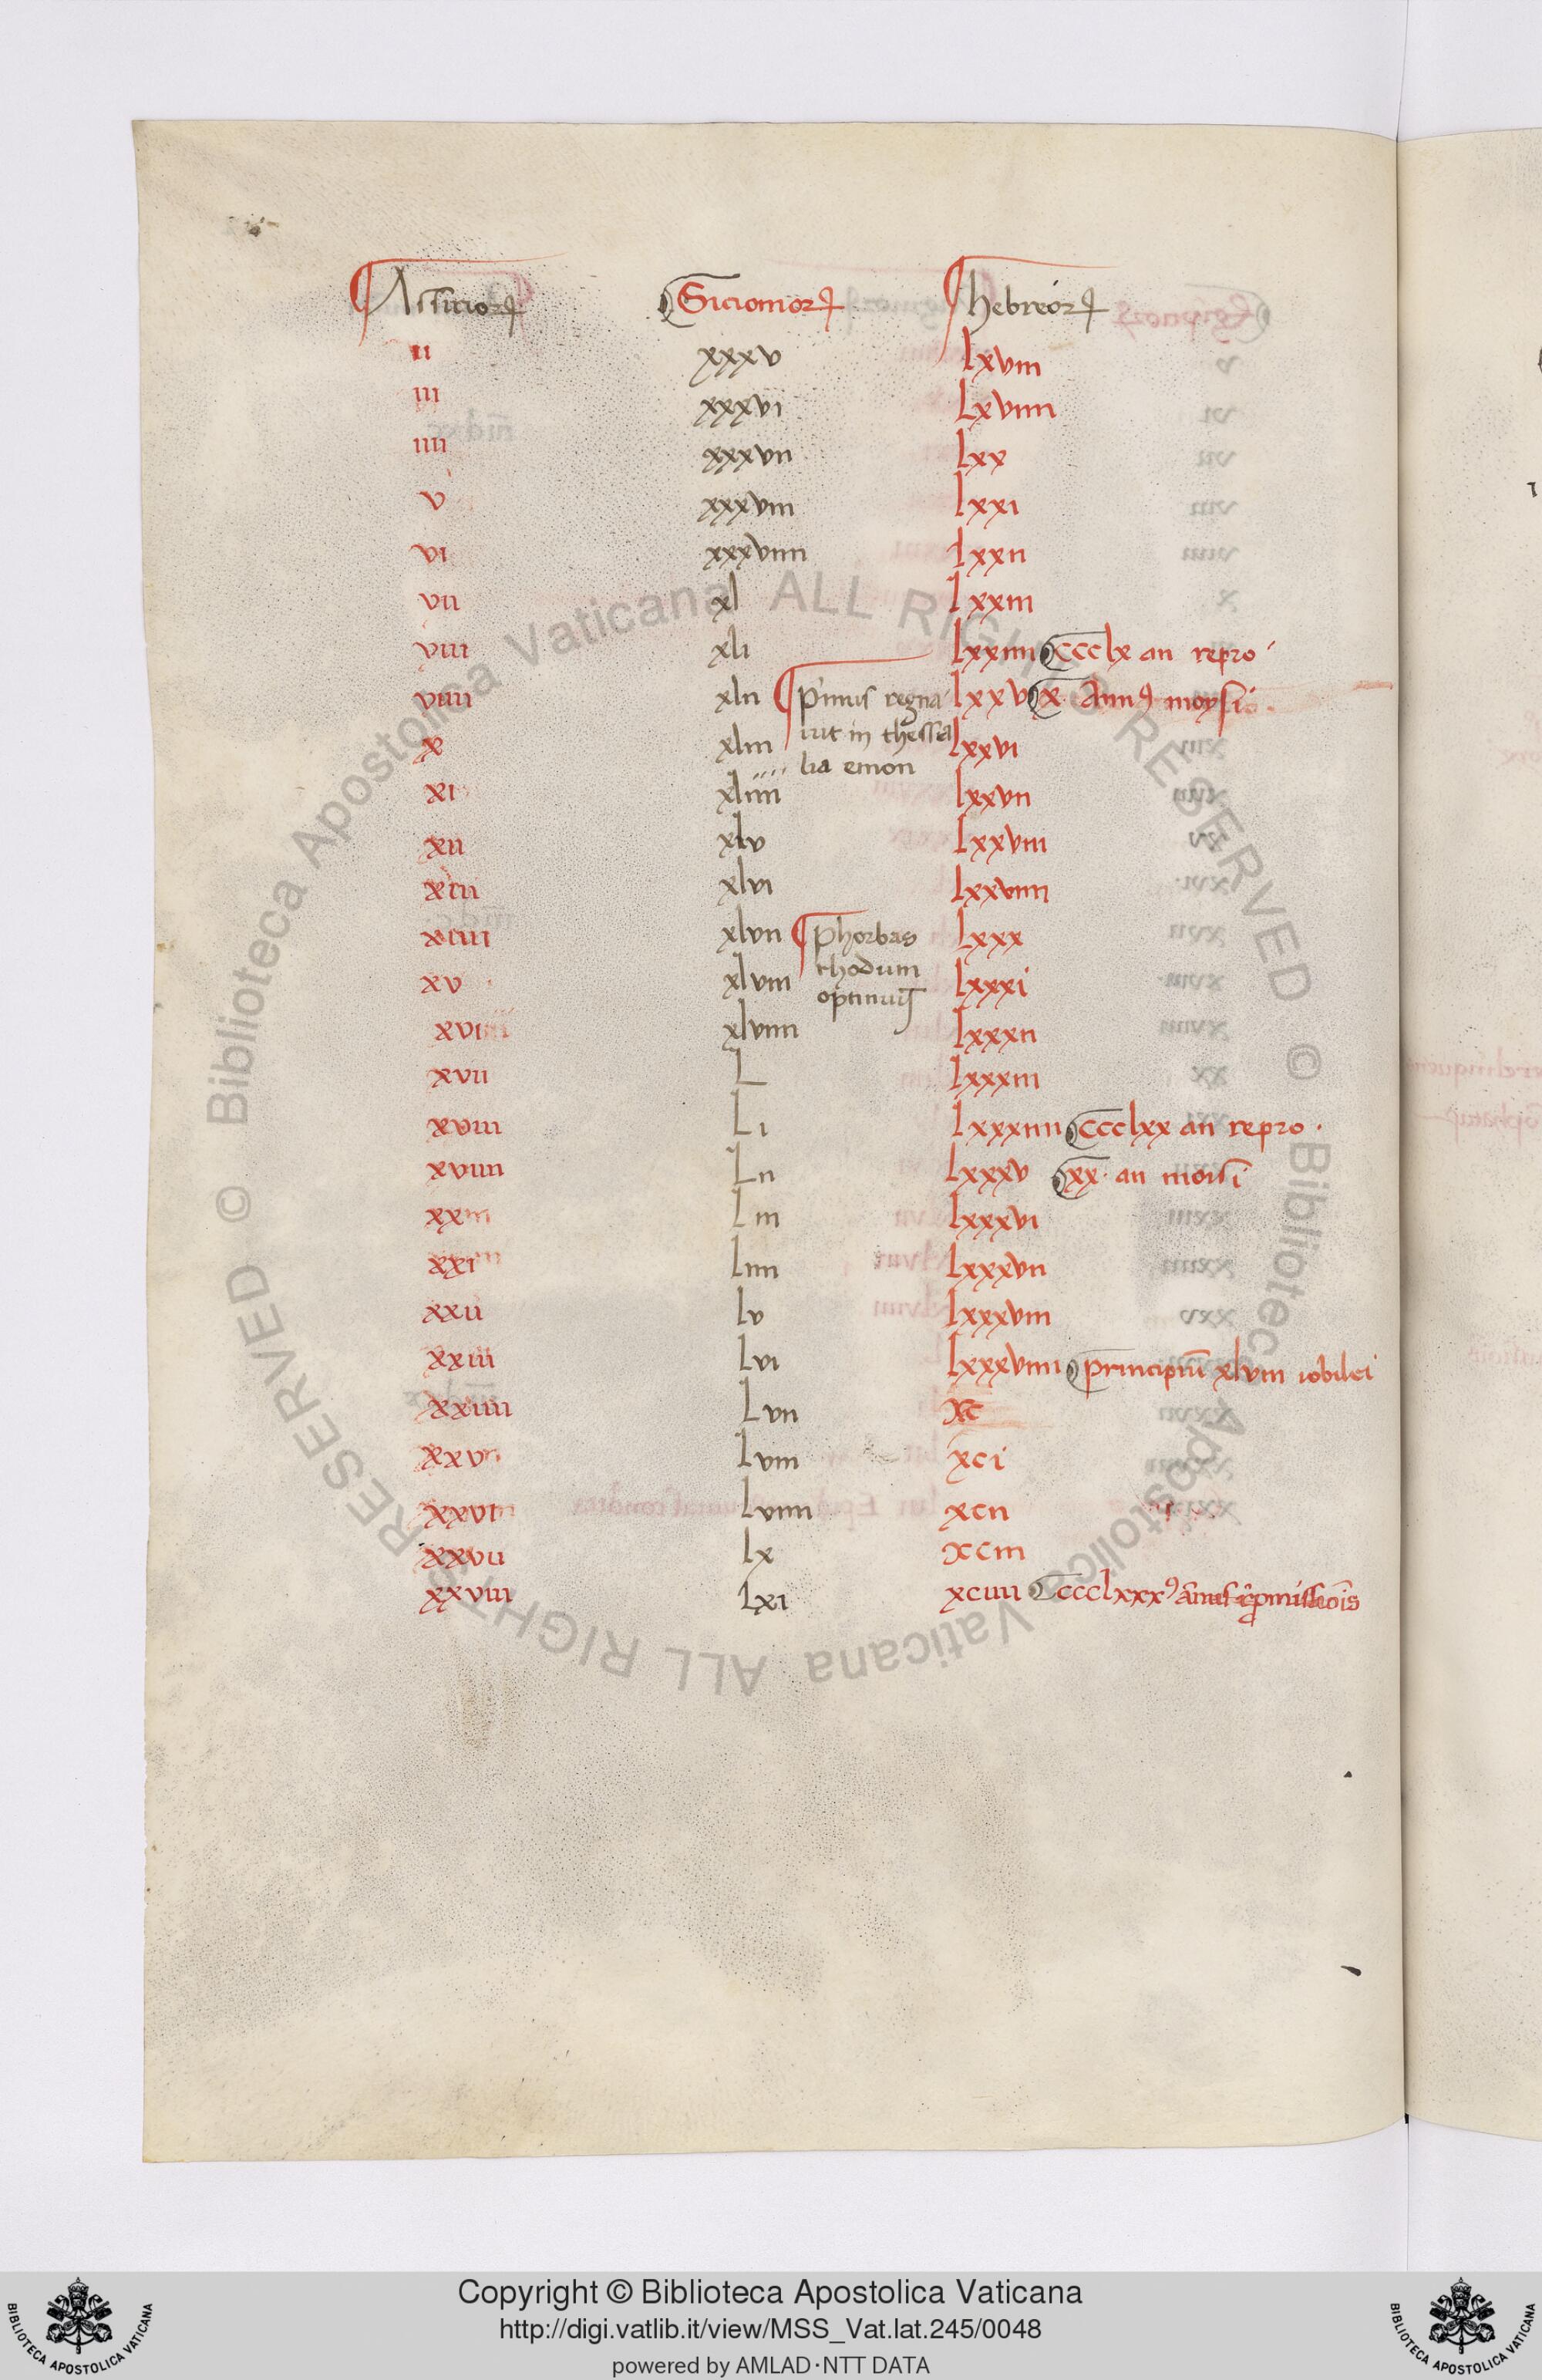 Assirioꝝ Sicionioꝝ hebreoꝝ
ii xxxv lxviii
iii xxxvi lxviiii
iiii xxxvii lxx
v xxxviii lxxi
vi xxxviiii lxxii
vii xl lxxiii
viii xli lxxiiii ccclx an repro
viiii xlii Primus regna lxxv x Annꝰ moysi
x xliii uit in thessa lxxvi
lia emon
xi xliiii lxxvii
xii xlv lxxviii
xiii xlvi lxxviiii
xiiii xlvii Phorbas lxxx
xv xlviii rhodum lxxxi
optinuit
xvi xlviiii lxxxii
xvii L lxxxiii
xviii Li lxxxiiii ccclxx an repro.
xviiii Lii lxxxv xx. an moisi
xx Liii lxxxvi
xxi Liiii lxxxvii
xxii Lv lxxxviii
xxiii Lvi lxxxviiii principiū xlviii iobilei
xxiiii Lvii xc
xxv Lviii xci
xxvi Lviiii xcii
xxvii lx xciii
xxviii Lxi xciiii ccclxxxꝰ
Copyright © Biblioteca Apostolica Vaticana
http://digi.vatlib.it/view/MSS_Vat.lat.245/0048
powered by AMLAD·NTT DATA
BIBLIOTECA APOSTOLICA VATICANA
BIBLIOTECA APOSTOLICA VATICANA
© Biblioteca Apostolica Vaticana ALL RIGHTS RESERVED
© Biblioteca Apostolica Vaticana ALL RIGHTS RESERVED